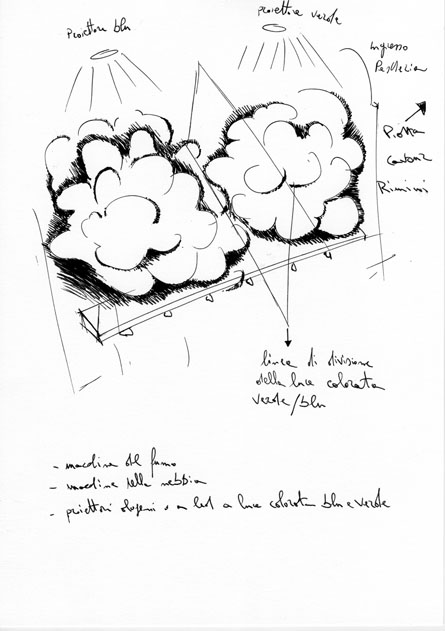 proiettore blu
proiettore verde
ingresso
Pescheria
Piazza
Cavour
Rimini
linea di divisione
della luce colorata
verde/blu
- macchina del fumo
- macchina della nebbia
- proiettori alogeni o a led a luce colorata blu e verde